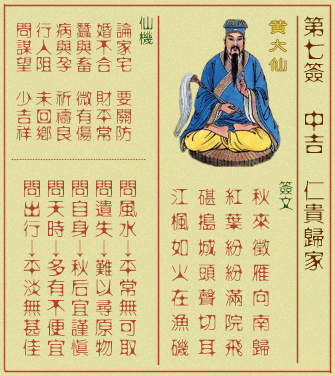 第七簽 中吉 仁貴歸家
黃大仙
簽文
秋來徵雁向南歸
紅葉紛紛滿院飛
碪搗城頭聲切耳
江楓如火在漁磯
仙機
論家宅 要關防
婚不合 財平常
蠶與畜 微有傷
病與孕 祈禱良
行人阻 未回鄉
問謀望 少吉祥
問風水→平常無可取
問遺失→難以尋原物
問自身→秋后宜謹慎
問天時→多有不便宜
問出行→平淡無甚佳